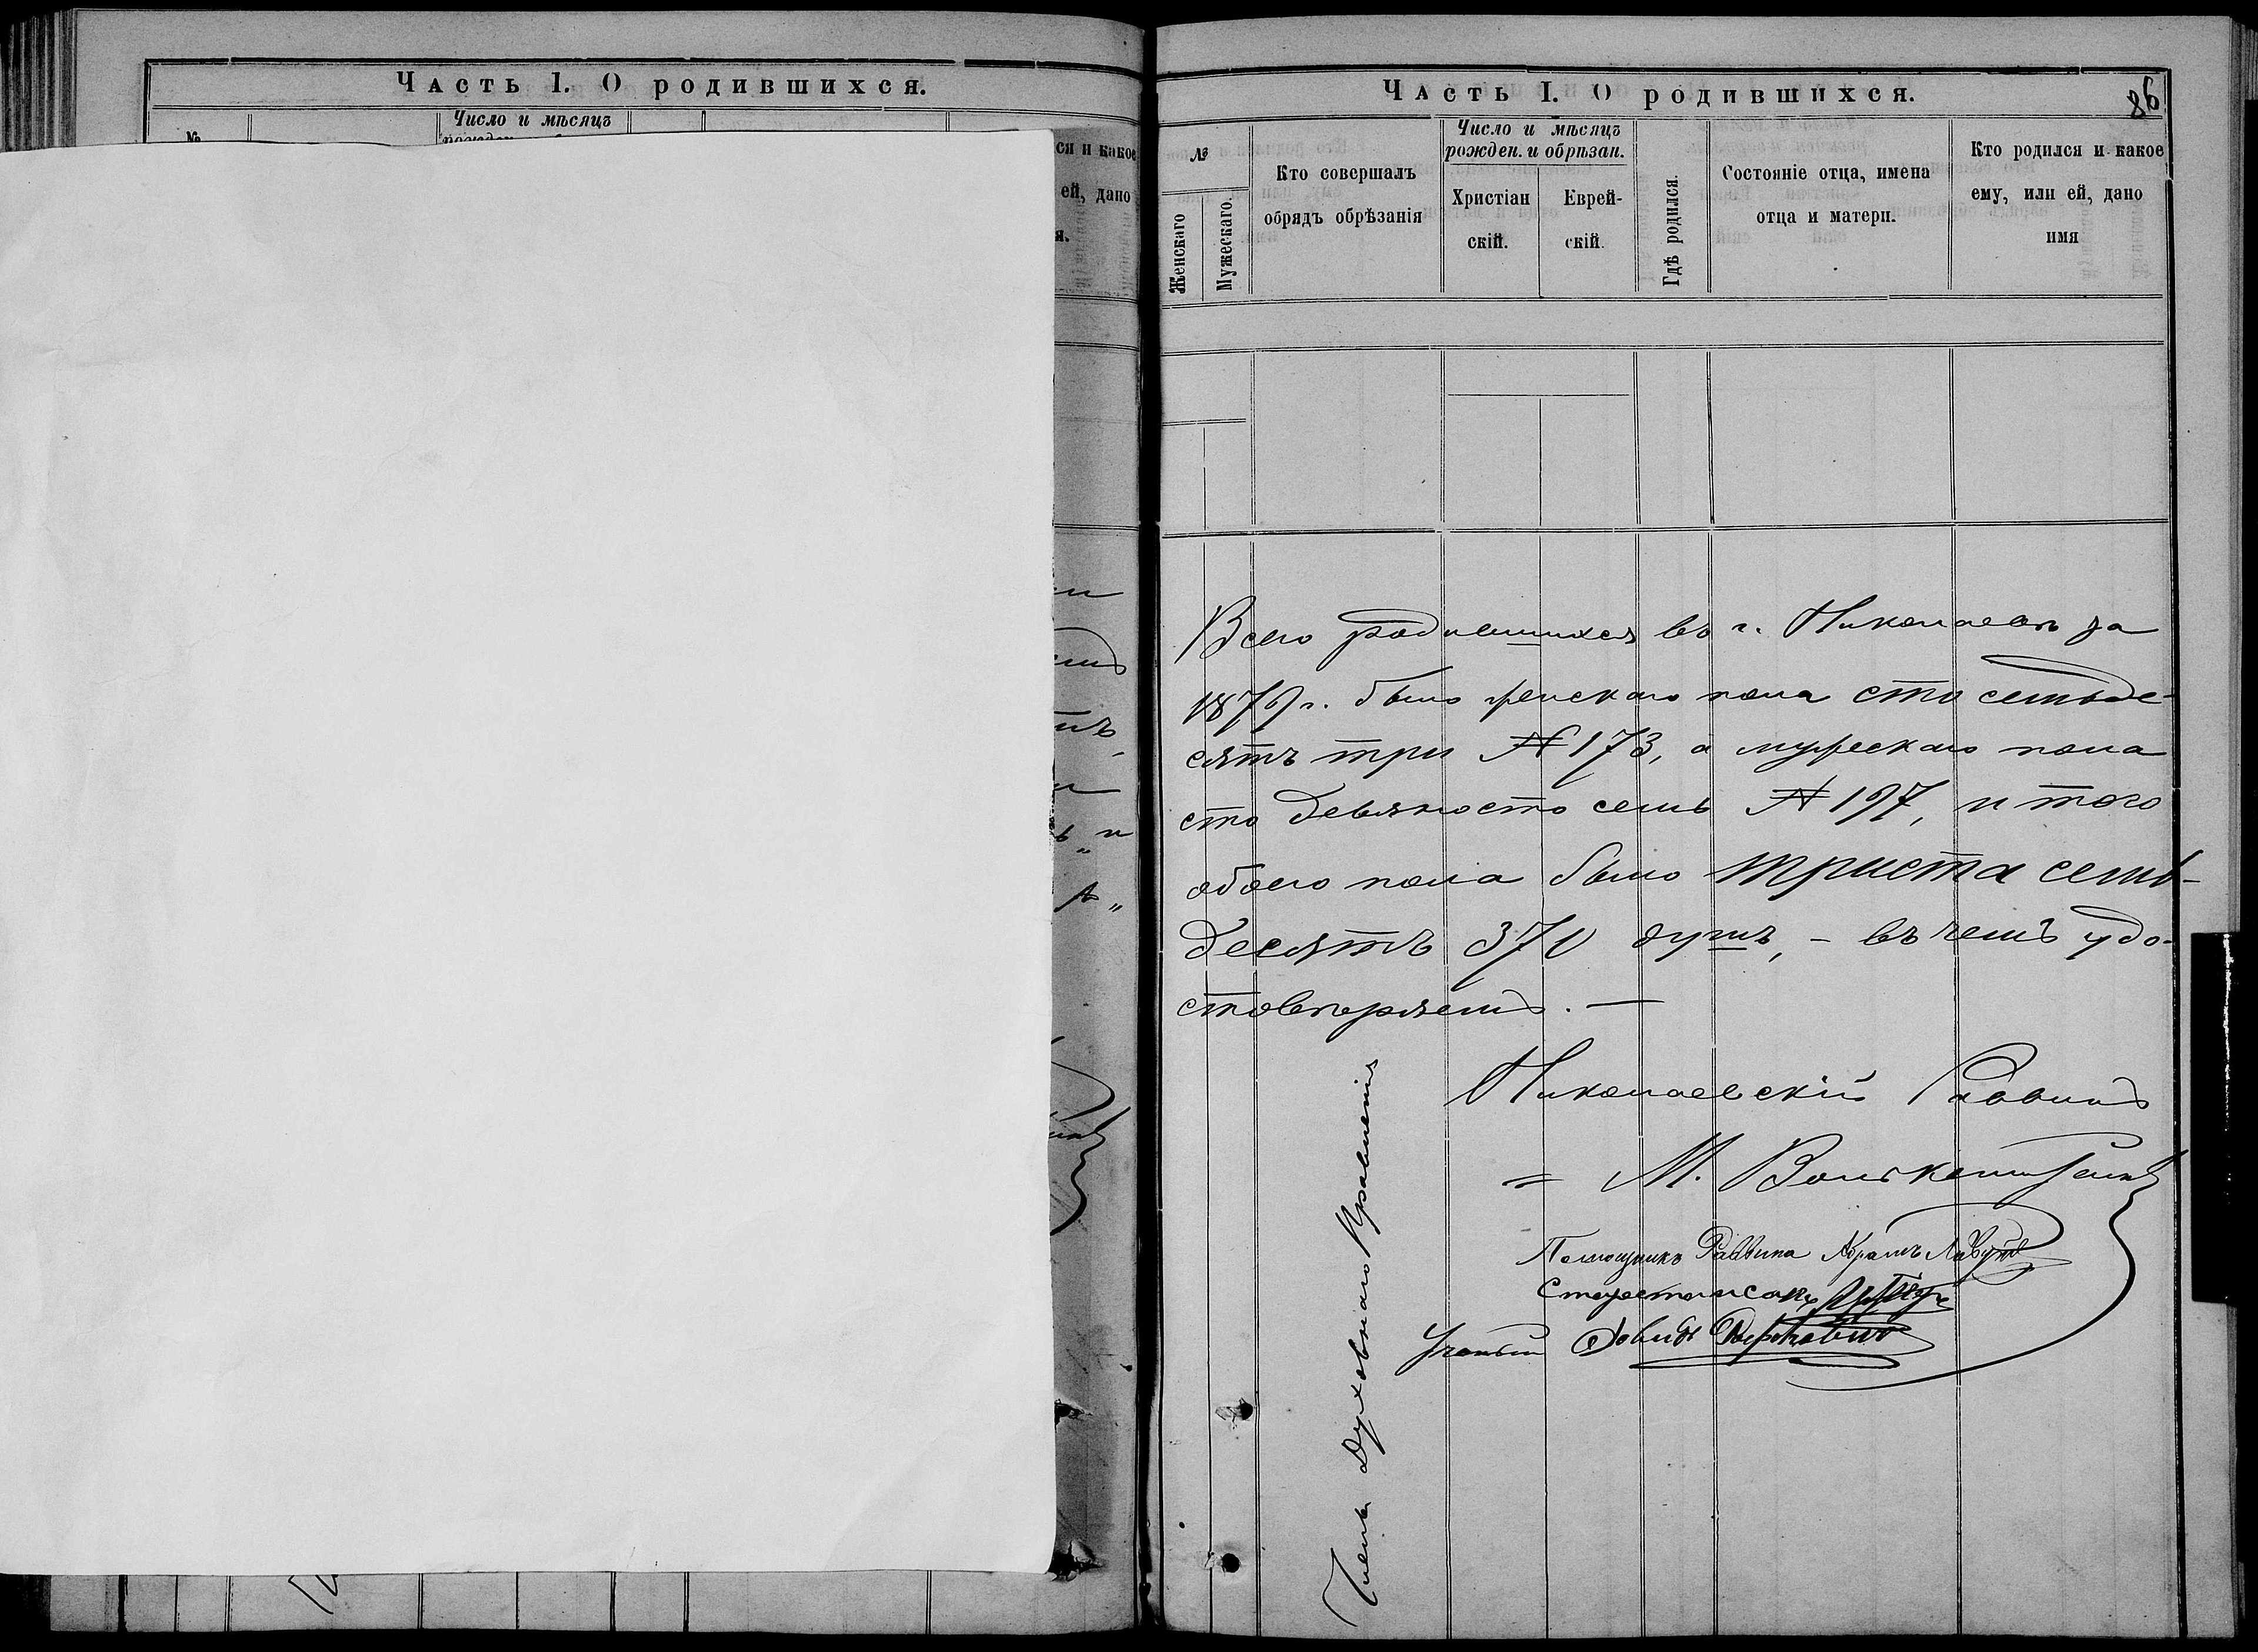 Часть 1. О родившихся.
Число и мѣсяцъ
№
ся и какое
ей, дано
я.
Часть I. О родившихся.
86
№
Женскаго
Мужескаго.
Кто совершалъ
обрядъ обрѣзанія
Число и мѣсяцъ
рожден. и обрѣзан.
Христіан
скій.
Еврей-
скій.
Гдѣ родился.
Состояніе отца, имена
отца и матери.
Кто родился и какое
ему, или ей, дано
имя
Всего родившихся въ г. Николаевѣ за
1879 г. было женскаго пола сто семьде-
сятъ три № 173, а мужескаго пола
сто девяносто семь № 197, и того
обоего пола было триста семь-
десятъ 370 душъ, - въ чемъ удо-
стовѣряемъ. —
Николаевскій Раввинъ
= М. Волькенштейнъ
Помощникъ Раввина Абрамъ
Староста Исакъ
Ученый Довидъ
Члены Духовнаго Правленія